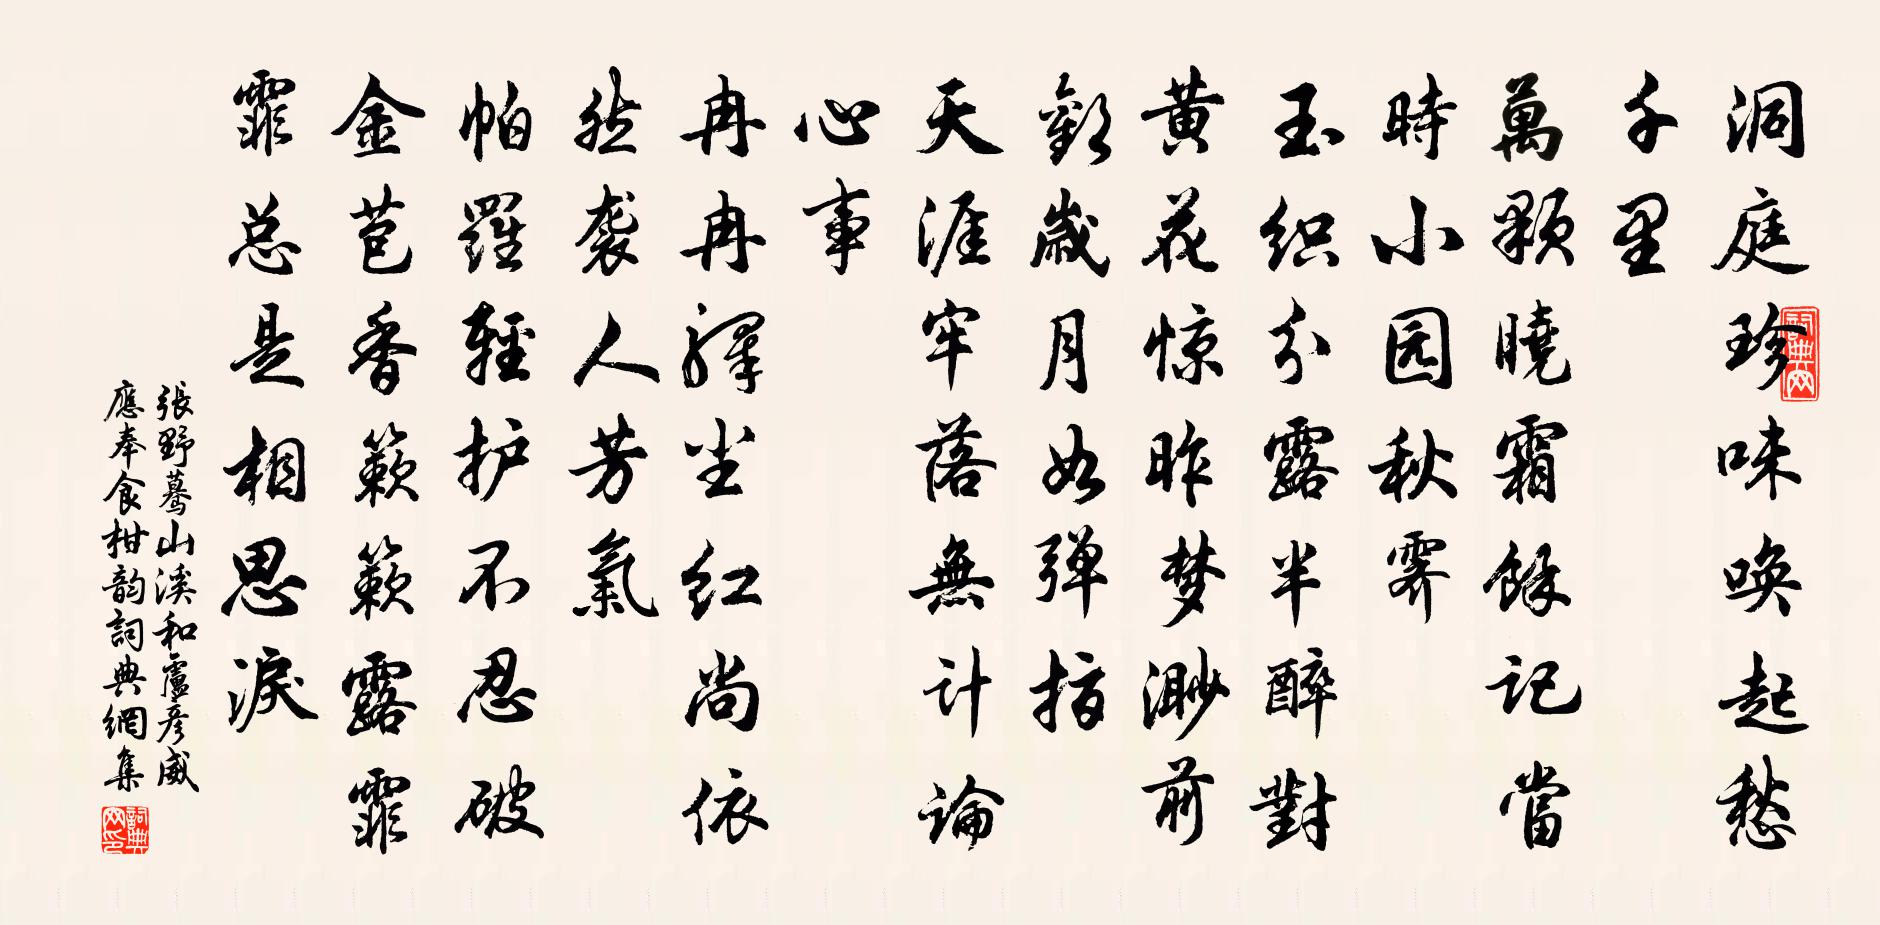 洞庭珍味唤起愁
千里
萬顆曉霜餘记當
時小园秋霁
玉织分露半醉對
黄花惊昨梦渺前
歡歲月如弹指
天涯牢落無计論
心事
冉冉驿尘红尚依
然袭人芳氣
帕羅輕护不忍破
金苞香簌簌露霏
霏总是相思淚
張野蓦山溪和盧彦威
應奉食柑韵詞典網集
詞典网
詞典网印